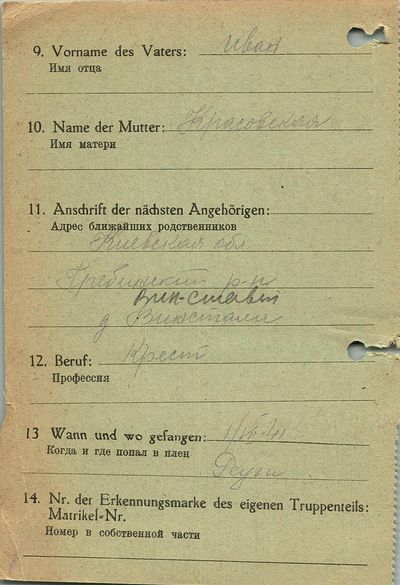 9. Vorname des Vaters: Иван
Имя отца
10. Name der Mutter: Красовская
Имя матери
11. Anschrift der nächsten Angehörigen:
Адрес ближайших родственников
Киевская обл.
Гребинский р-н
Вин-Стави
д Винстали
12. Beruf: Крест
Профессия
13 Wann und wo gefangen: 1/VII-41
Когда и где попал в плен
14. Nr. der Erkennungsmarke des eigenen Truppenteils:
Matrikel-Nr.
Номер в собственной части